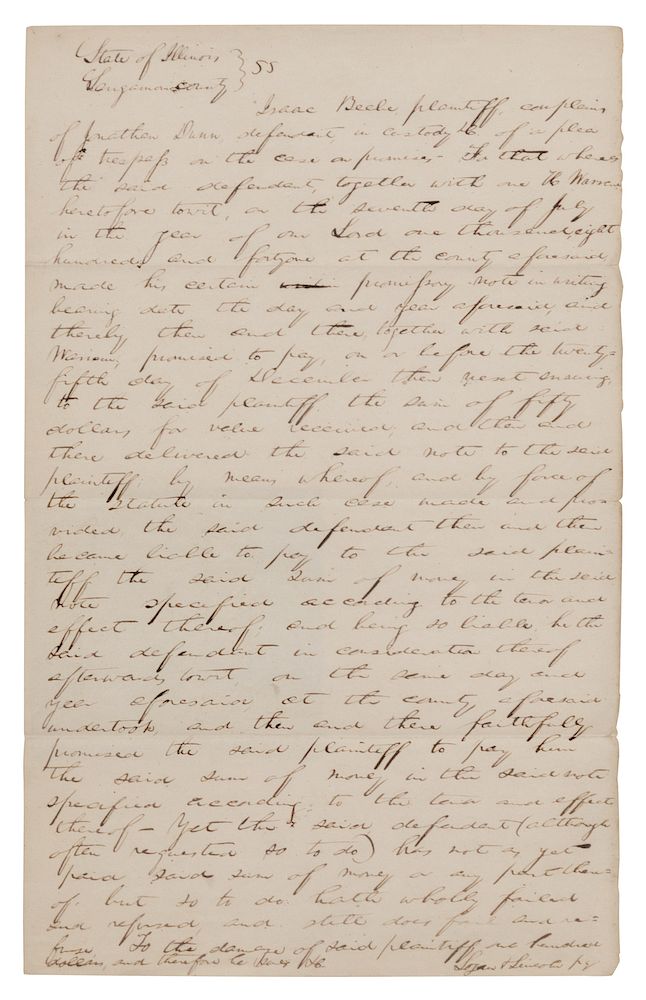 State of Illinois } SS
Sangamon county }
Isaac Beele, plaintiff, complains
of Jonathan Dunn, defendant, in custody &c. of a plea
of trespass on the case on promises - For that whereas
the said defendant, together with one
heretofore towit, on the seventh day of July
in the year of our Lord one thousand, eight
hundred and fortyone at the county aforesaid,
made his certain promissory note in writing
bearing date the day and year aforesaid, and
thereby then and there, together with said
promised to pay, on or before the twenty-
fifth day of December then next ensuing,
to the said plaintiff the sum of fifty
dollars for value received, and then and
there delivered the said note to the said
plaintiff; by means whereof, and by force of
the statute in such case made and pro-
vided, the said defendant then and there
became liable to pay to the said plain-
tiff the said sum of money in the said
note specified according to the tenor and
effect thereof; and being so liable he the
said defendant in consideration thereof
afterwards, towit, on the same day and
year aforesaid at the county aforesaid
undertook, and then and there faithfully
promised the said plaintiff to pay him
the said sum of money in the said note
specified according to the tenor and effect
thereof - Yet the said defendant (although
often requested so to do) has not as yet
paid said sum of money or any part there-
of; but so to do hath wholly failed
and refused, and still does fail and re-
fuse To the damage of said plaintiff one hundred
dollars, and therefore he sues &c
Logan & Lincoln p.q